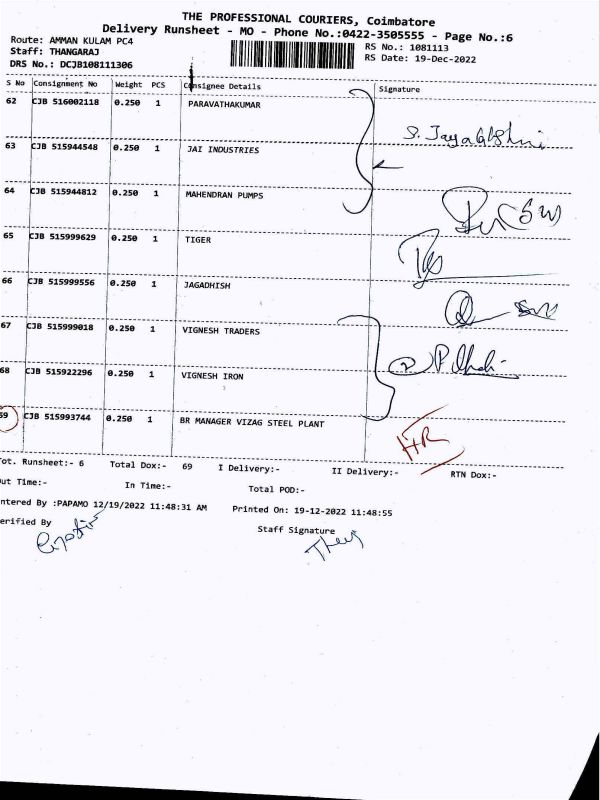 THE PROFESSIONAL COURIERS, Coimbatore
Delivery Runsheet - MO - Phone No.:0422-3505555 - Page No.:6
Route: AMMAN KULAM PC4
RS No.: 1081113
Staff: THANGARAJ
RS Date: 19-Dec-2022
DRS No.: DCJB108111306
S No Consignment No Weight PCS Consignee Details Signature
62 CJB 516002118 0.250 1 PARAVATHAKUMAR
63 CJB 515944548 0.250 1 JAI INDUSTRIES
64 CJB 515944812 0.250 1 MAHENDRAN PUMPS
65 CJB 515999629 0.250 1 TIGER
66 CJB 515999556 0.250 1 JAGADHISH
67 CJB 515999018 0.250 1 VIGNESH TRADERS
68 CJB 515922296 0.250 1 VIGNESH IRON
69 CJB 515993744 0.250 1 BR MANAGER VIZAG STEEL PLANT
ot. Runsheet:- 6 Total Dox:- 69 I Delivery:- II Delivery:- RTN Dox:-
ut Time:- In Time:- Total POD:-
ntered By :PAPAMO 12/19/2022 11:48:31 AM Printed On: 19-12-2022 11:48:55
erified By Staff Signature